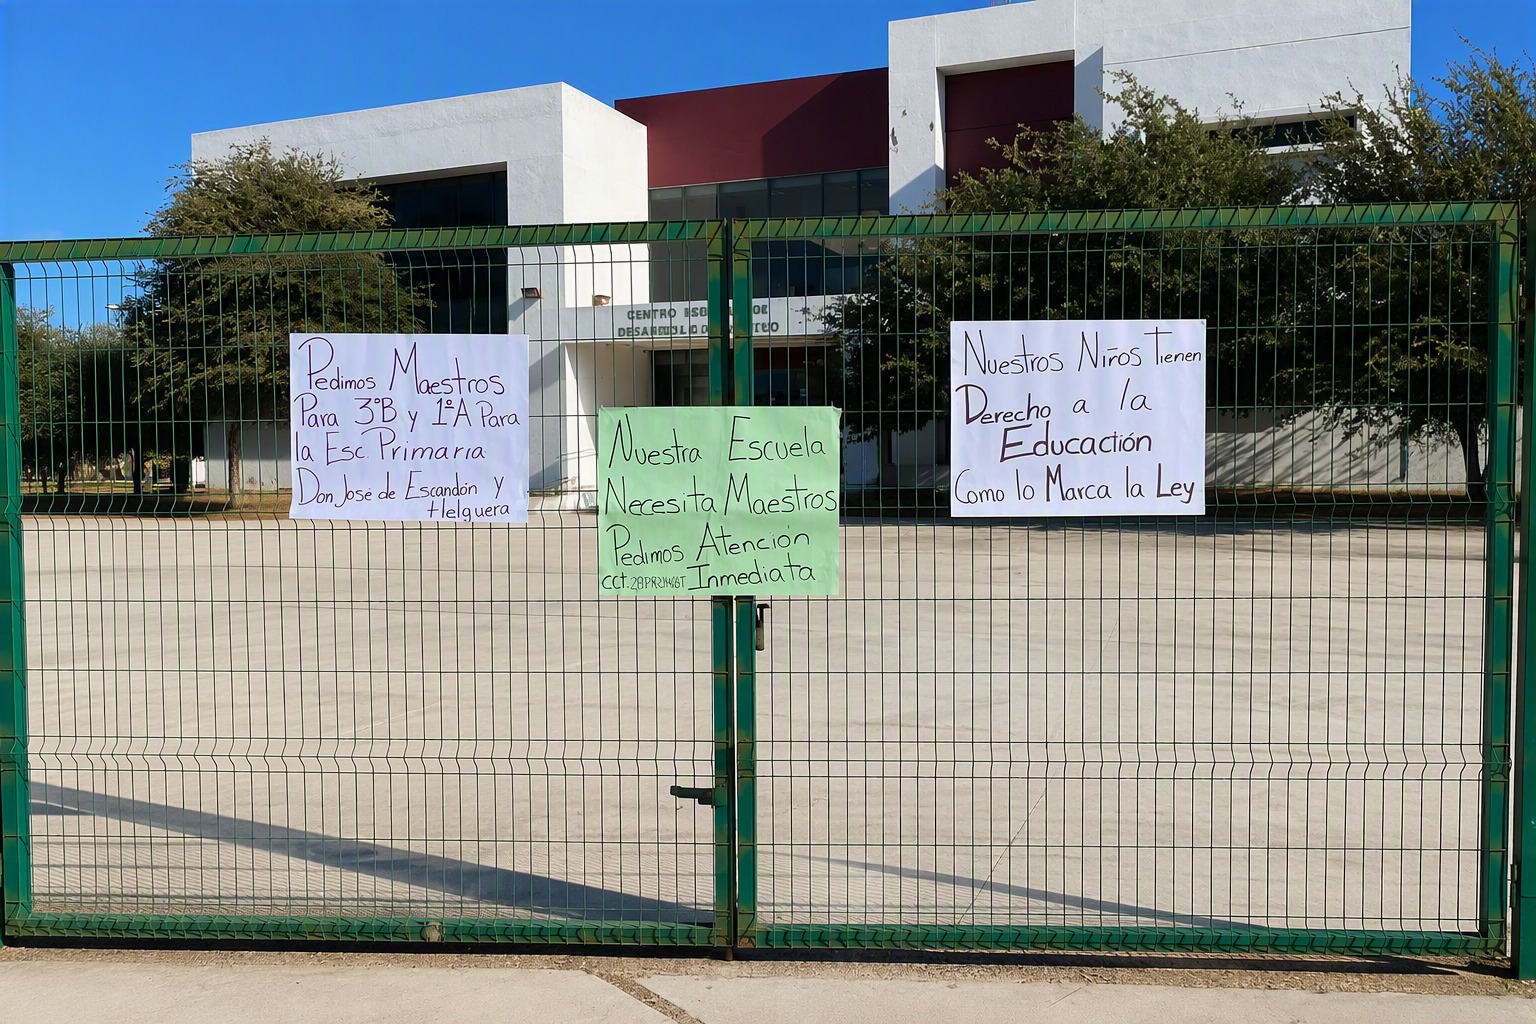 CENTRO
Pedimos Maestros
Para 3°B y 1°A Para
la Esc. Primaria
Don José de Escandón y
Helguera
Nuestra Escuela
Necesita Maestros
Pedimos Atención
CCT. Inmediata
Nuestros Niños Tienen
Derecho a la
Educación
Como lo Marca la Ley